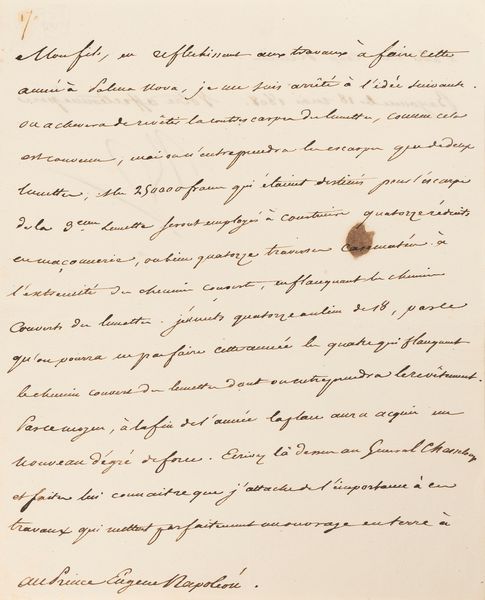 7
Mon fils, en reflechissant aux travaux à faire cette
année à Palma Nova, je me suis arrêté à l'idée suivante.
on achevera de revêtir la contrescarpe des lunettes, comme cela
est convenu, mais on n'entreprendra les escarpes que de deux
lunettes, les 250000 francs qui étaient destinés pour l'escarpe
de la 3eme lunette seront employés à construire quatorze réduits
en maçonnerie, ou bien quatorze traverses casematées à
l'extrémité du chemin couvert, enflanquant le chemin
couvert des lunettes. je mets quatorze au lieu de 18, parce
qu'on pourra ne pas faire cette année les quatre qui flanquent
le chemin couvert des lunettes dont on entreprendra le revêtement.
Par ce moyen, à la fin de l'année la place aura acquis un
nouveau dégré de force. Ecrivez là dessus au Général Chasseloup
et faites lui connaitre que j'attache de l'importance à ces
travaux qui mettent parfaitement un ouvrage en terre à
au Prince Eugene Napoléon.